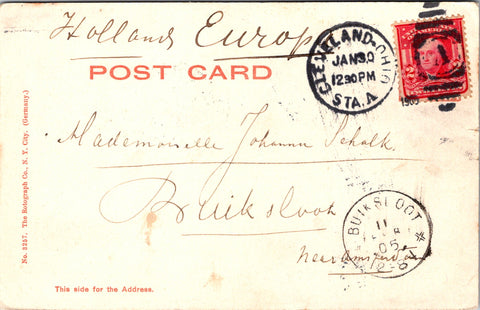 Holland Europ
POST CARD
CLEVELAND-OHIO
JAN 30
12 30 PM
STA. A
1905
Mademoiselle Johanna Schalk.
Buiksloot
near Amsterdam
BUIKSLOOT
11
FEB
05
No. 5257. The Rotograph Co., N. Y. City. (Germany.)
This side for the Address.